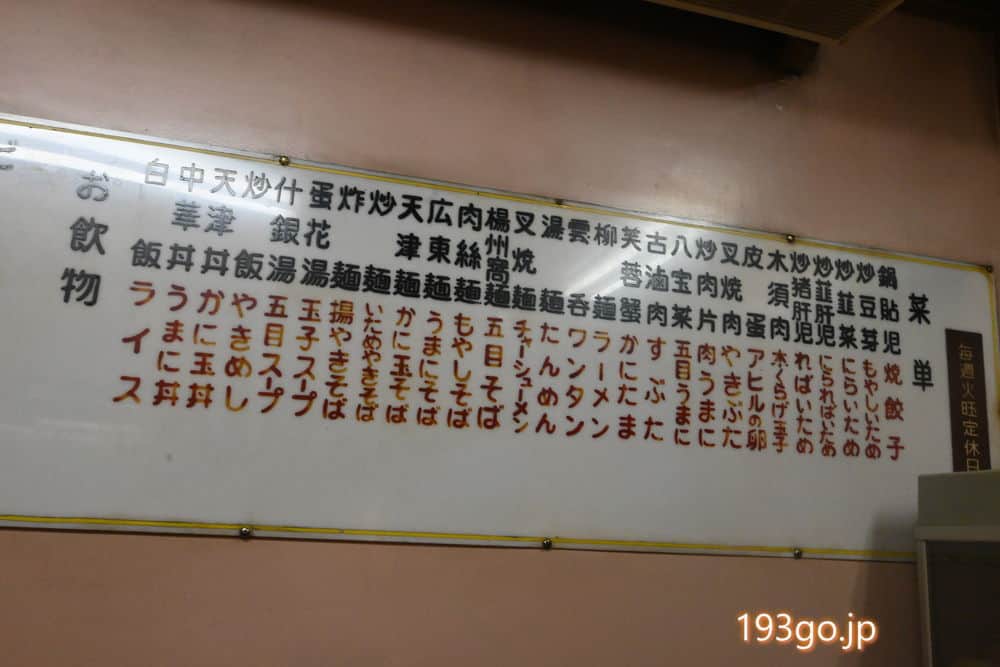 菜単
鍋貼児 焼餃子
炒豆芽 もやしいため
炒韮菜 にらいため
炒韮肝児 にらればいため
炒猪肝児 ればいため
木須肉 木くらげ玉子
皮蛋 アヒルの卵
叉焼肉 やきぶた
炒肉片 肉うまに
八宝菜 五目うまに
古滷肉 すぶた
芙蓉蟹 かにたま
柳麺 ラーメン
雲呑 ワンタン
湯麺 たんめん
叉焼麺 チャーシューメン
楊州窩麺 五目そば
肉絲麺 もやしそば
広東麺 うまにそば
天津麺 かに玉そば
炒麺 いためやきそば
炸麺 揚やきそば
蛋花湯 玉子スープ
什銀湯 五目スープ
炒飯 やきめし
天津丼 かに玉丼
中華丼 うまに丼
白飯 ライス
お飲物
毎週火旺定休日
193go.jp